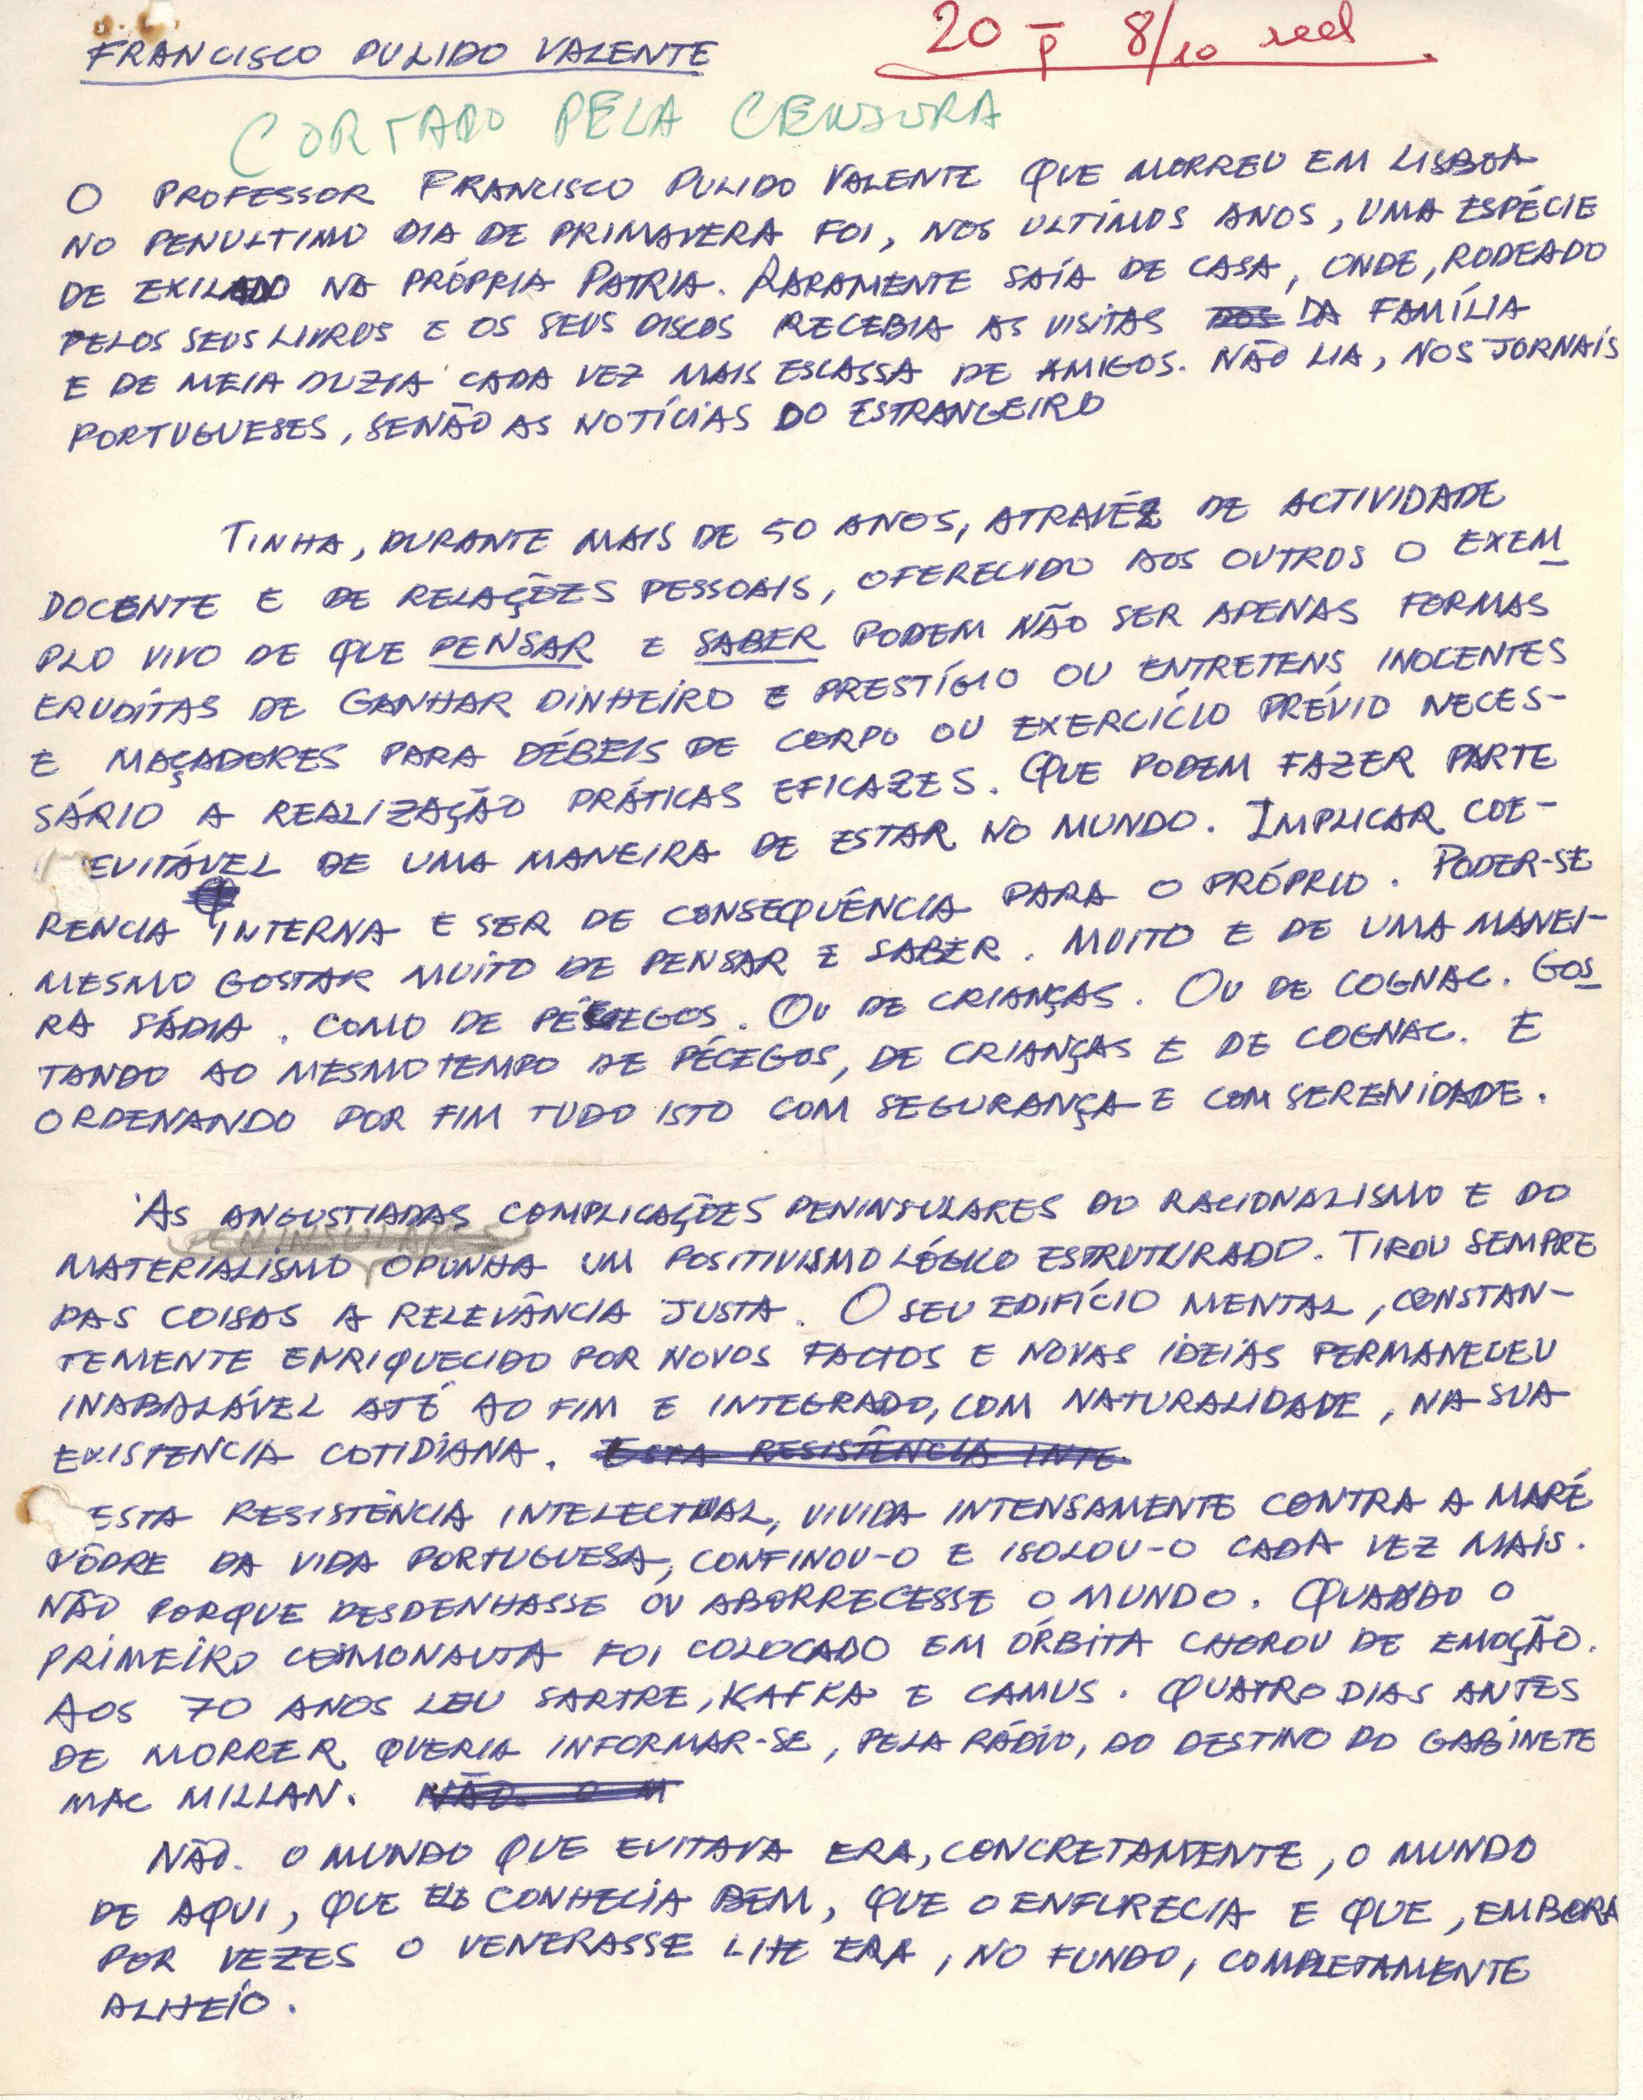 FRANCISCO PULIDO VALENTE
20 p 8/10 red
CORTADO PELA CENSURA
O PROFESSOR FRANCISCO PULIDO VALENTE QUE MORREU EM LISBOA
NO PENULTIMO DIA DE PRIMAVERA FOI, NOS ULTÍMOS ANOS, UMA ESPÉCIE
DE EXILADO NA PRÓPRIA PATRIA. RARAMENTE SAÍA DE CASA, ONDE, RODEADO
PELOS SEUS LIVROS E OS SEUS DISCOS RECEBIA AS VISITAS DOS DA FAMÍLIA
E DE MEIA DUZIA CADA VEZ MAIS ESCASSA DE AMIGOS. NÃO LIA, NOS JORNAIS
PORTUGUESES, SENÃO AS NOTÍCIAS DO ESTRANGEIRO
TINHA, DURANTE MAIS DE 50 ANOS, ATRAVÉZ DE ACTIVIDADE
DOCENTE E DE RELAÇÕES PESSOAIS, OFERECIDO AOS OUTROS O EXEM
PLO VIVO DE QUE PENSAR E SABER PODEM NÃO SER APENAS FORMAS
ERUDÍTAS DE GANHAR DINHEIRO E PRESTÍGIO OU ENTRETENS INOCENTES
E MAÇADORES PARA DÉBEIS DE CORPO OU EXERCÍCIO PRÉVIO NECES-
SÁRIO A REALIZAÇÃO PRÁTICAS EFICAZES. QUE PODEM FAZER PARTE
EVITÁVEL DE UMA MANEIRA DE ESTAR NO MUNDO. IMPLICAR COE-
RENCIA INTERNA E SER DE CONSEQUÊNCIA PARA O PRÓPRIO. PODER-SE
MESMO GOSTAR MUITO DE PENSAR E SABER. MUITO E DE UMA MANEI-
RA SÁDIA. COMO DE PÊCEGOS. OU DE CRIANÇAS. OU DE COGNAC. GOS
TANDO AO MESMO TEMPO DE PÉCEGOS, DE CRIANÇAS E DE COGNAC. E
ORDENANDO POR FIM TUDO ISTO COM SEGURANÇA E COM SERENIDADE.
AS ANGUSTIADAS COMPLICAÇÕES PENINSULARES DO RACIONALISMO E DO
PENINSULARES
MATERIALISMO OPUNHA UM POSITIVISMO LÓGICO ESTRUTURADO. TIROU SEMPRE
DAS COISAS A RELEVÂNCIA JUSTA. O SEU EDIFÍCIO MENTAL, CONSTAN-
TEMENTE ENRIQUECIDO POR NOVOS FACTOS E NOVAS IDEIAS PERMANECEU
INABALÁVEL ATÉ AO FIM E INTEGRADO, COM NATURALIDADE, NA SUA
EXISTENCIA COTIDIANA. ESTA RESISTÊNCIA INTE
ESTA RESISTÊNCIA INTELECTUAL, VIVIDA INTENSAMENTE CONTRA A MARÉ
PÔDRE DA VIDA PORTUGUESA, CONFINOU-O E ISOLOU-O CADA VEZ MAIS.
NÃO PORQUE DESDENHASSE OU ABORRECESSE O MUNDO. QUANDO O
PRIMEIRO COSMONAUTA FOI COLOCADO EM ÓRBITA CHOROU DE EMOÇÃO.
AOS 70 ANOS LEU SARTRE, KAFKA E CAMUS. QUATRO DIAS ANTES
DE MORRER QUERIA INFORMAR-SE, PELA RÁDIO, DO DESTINO DO GABINETE
MAC MILLAN. NÃO. O M
NÃO. O MUNDO QUE EVITAVA ERA, CONCRETAMENTE, O MUNDO
DE AQUI, QUE CONHECIA BEM, QUE O ENFURECIA E QUE, EMBORA
POR VEZES O VENERASSE LHE ERA, NO FUNDO, COMPLETAMENTE
ALHEIO.